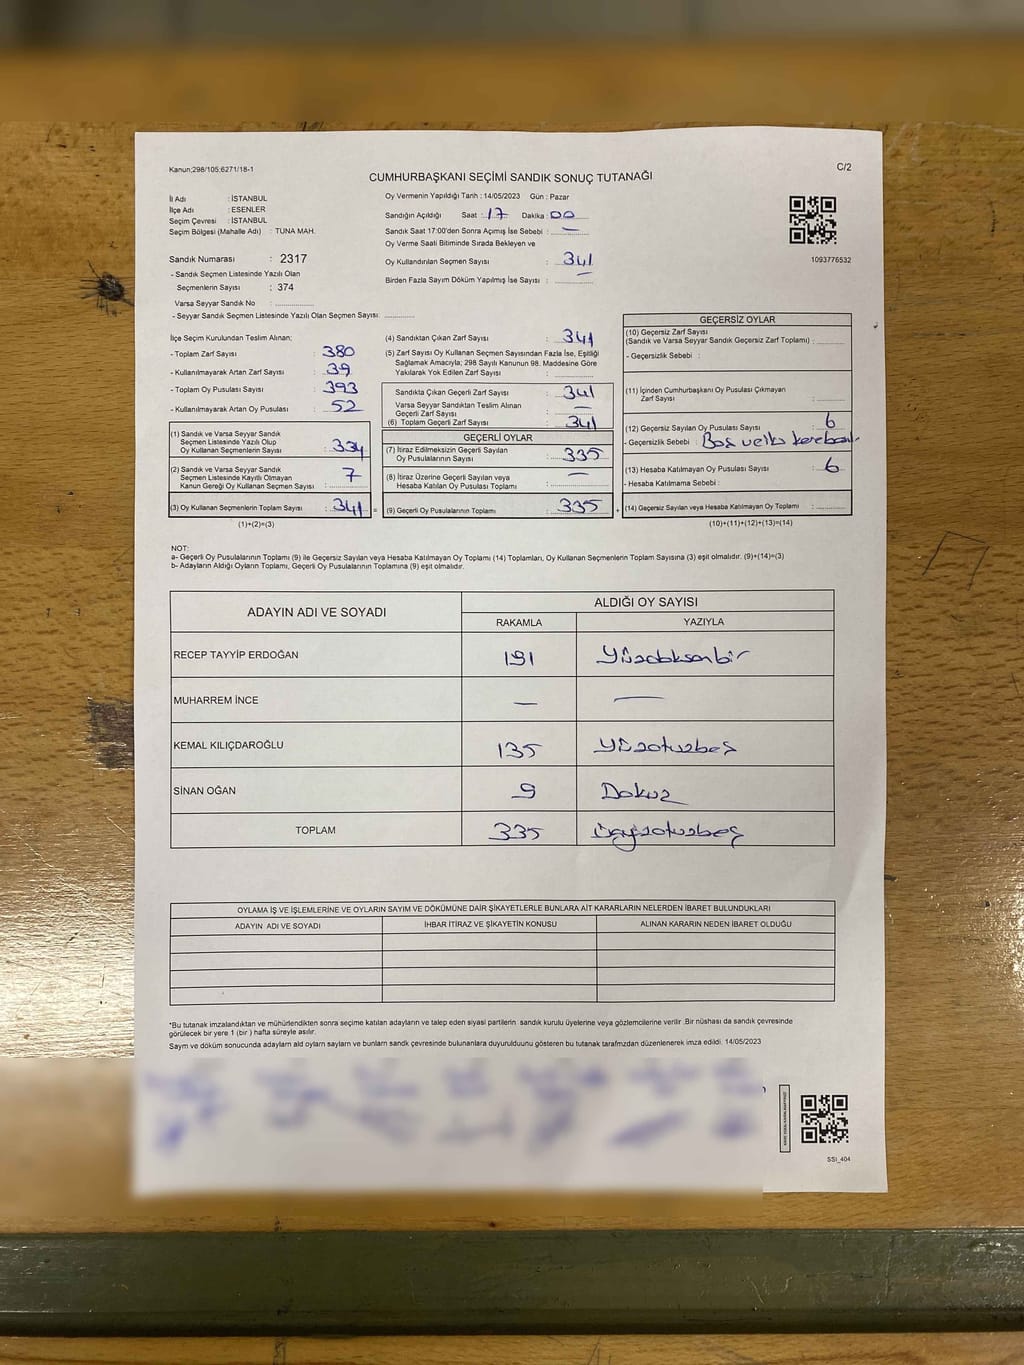 Kanun;298/105;6271/18-1
C/2
CUMHURBAŞKANI SEÇİMİ SANDIK SONUÇ TUTANAĞI
İl Adı : İSTANBUL
İlçe Adı : ESENLER
Seçim Çevresi : İSTANBUL
Seçim Bölgesi (Mahalle Adı) : TUNA MAH.
Sandık Numarası : 2317
- Sandık Seçmen Listesinde Yazılı Olan
Seçmenlerin Sayısı : 374
Varsa Seyyar Sandık No :
- Seyyar Sandık Seçmen Listesinde Yazılı Olan Seçmen Sayısı:
Oy Vermenin Yapıldığı Tarih : 14/05/2023 Gün : Pazar
Sandığın Açıldığı Saat : 17 Dakika : 00
Sandık Saat 17:00'den Sonra Açımış İse Sebebi : —
Oy Verme Saati Bitiminde Sırada Bekleyen ve
Oy Kullandırılan Seçmen Sayısı : 341
Birden Fazla Sayım Döküm Yapılmış İse Sayısı : —
1093776532
İlçe Seçim Kurulundan Teslim Alınan:
- Toplam Zarf Sayısı : 380
- Kullanılmayarak Artan Zarf Sayısı : 39
- Toplam Oy Pusulası Sayısı : 393
- Kullanılmayarak Artan Oy Pusulası : 52
(1) Sandık ve Varsa Seyyar Sandık
Seçmen Listesinde Yazılı Olup
Oy Kullanan Seçmenlerin Sayısı : 334
(2) Sandık ve Varsa Seyyar Sandık
Seçmen Listesinde Kayıtlı Olmayan
Kanun Gereği Oy Kullanan Seçmen Sayısı : 7
(3) Oy Kullanan Seçmenlerin Toplam Sayısı : 341 =
(1)+(2)=(3)
(4) Sandıktan Çıkan Zarf Sayısı : 341
(5) Zarf Sayısı Oy Kullanan Seçmen Sayısından Fazla İse, Eşitliği
Sağlamak Amacıyla; 298 Sayılı Kanunun 98. Maddesine Göre
Yakılarak Yok Edilen Zarf Sayısı :
Sandıkta Çıkan Geçerli Zarf Sayısı : 341
Varsa Seyyar Sandıktan Teslim Alınan
Geçerli Zarf Sayısı : —
(6) Toplam Geçerli Zarf Sayısı : 341
GEÇERLİ OYLAR
(7) İtiraz Edilmeksizin Geçerli Sayılan
Oy Pusulalarının Sayısı : 335
(8) İtiraz Üzerine Geçerli Sayılan veya
Hesaba Katılan Oy Pusulası Toplamı : —
(9) Geçerli Oy Pusulalarının Toplamı : 335 +
GEÇERSİZ OYLAR
(10) Geçersiz Zarf Sayısı
(Sandık ve Varsa Seyyar Sandık Geçersiz Zarf Toplamı) :
- Geçersizlik Sebebi :
(11) İçinden Cumhurbaşkanı Oy Pusulası Çıkmayan
Zarf Sayısı :
(12) Geçersiz Sayılan Oy Pusulası Sayısı : 6
- Geçersizlik Sebebi : Boş
(13) Hesaba Katılmayan Oy Pusulası Sayısı : 6
- Hesaba Katılmama Sebebi :
(14) Geçersiz Sayılan veya Hesaba Katılmayan Oy Toplamı :
(10)+(11)+(12)+(13)=(14)
NOT:
a- Geçerli Oy Pusulalarının Toplamı (9) ile Geçersiz Sayılan veya Hesaba Katılmayan Oy Toplamı (14) Toplamları, Oy Kullanan Seçmenlerin Toplam Sayısına (3) eşit olmalıdır. (9)+(14)=(3)
b- Adayların Aldığı Oyların Toplamı, Geçerli Oy Pusulalarının Toplamına (9) eşit olmalıdır.
ADAYIN ADI VE SOYADI
ALDIĞI OY SAYISI
RAKAMLA YAZIYLA
RECEP TAYYİP ERDOĞAN 191 Yüzdoksanbir
MUHARREM İNCE — —
KEMAL KILIÇDAROĞLU 135 Yüzotuzbeş
SİNAN OĞAN 9 Dokuz
TOPLAM 335 Üçyüzotuzbeş
OYLAMA İŞ VE İŞLEMLERİNE VE OYLARIN SAYIM VE DÖKÜMÜNE DAİR ŞİKAYETLERLE BUNLARA AİT KARARLARIN NELERDEN İBARET BULUNDUKLARI
ADAYIN ADI VE SOYADI İHBAR İTİRAZ VE ŞİKAYETİN KONUSU ALINAN KARARIN NEDEN İBARET OLDUĞU
*Bu tutanak imzalandıktan ve mühürlendikten sonra seçime katılan adayların ve talep eden siyasi partilerin sandık kurulu üyelerine veya gözlemcilerine verilir .Bir nüshası da sandık çevresinde
görülecek bir yere 1 (bir ) hafta süreyle asılır.
Sayım ve döküm sonucunda adayların ald oyların sayların ve bunların sandk çevresinde bulunanlara duyurulduunu gösteren bu tutanak tarafmzdan düzenlenerek imza edildi. 14/05/2023
SSt_404